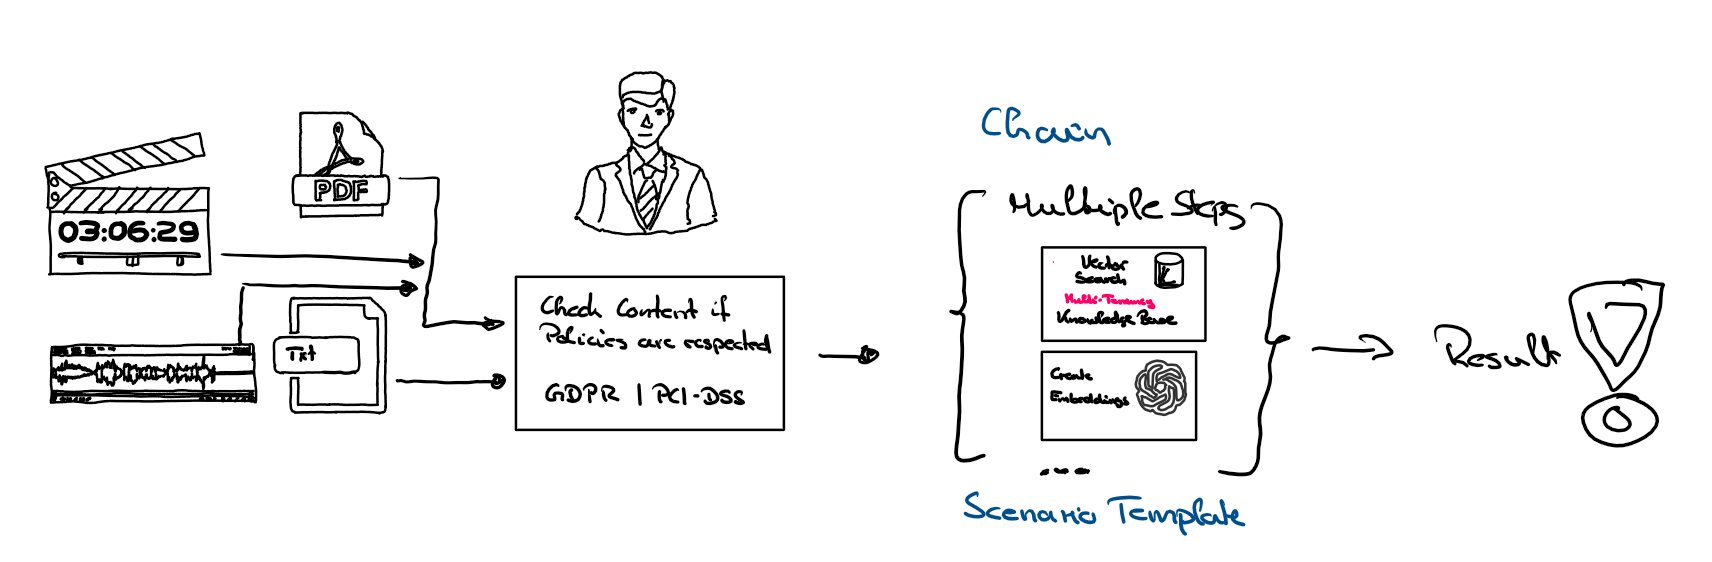 03:06:29
PDF
Txt
Check Content if
Policies are respected
GDPR | PCI-DSS
Chain
Multiple Steps
Vector
Search
Multi-Tenancy
Knowledge Base
Create
Embeddings
Scenario Template
Result